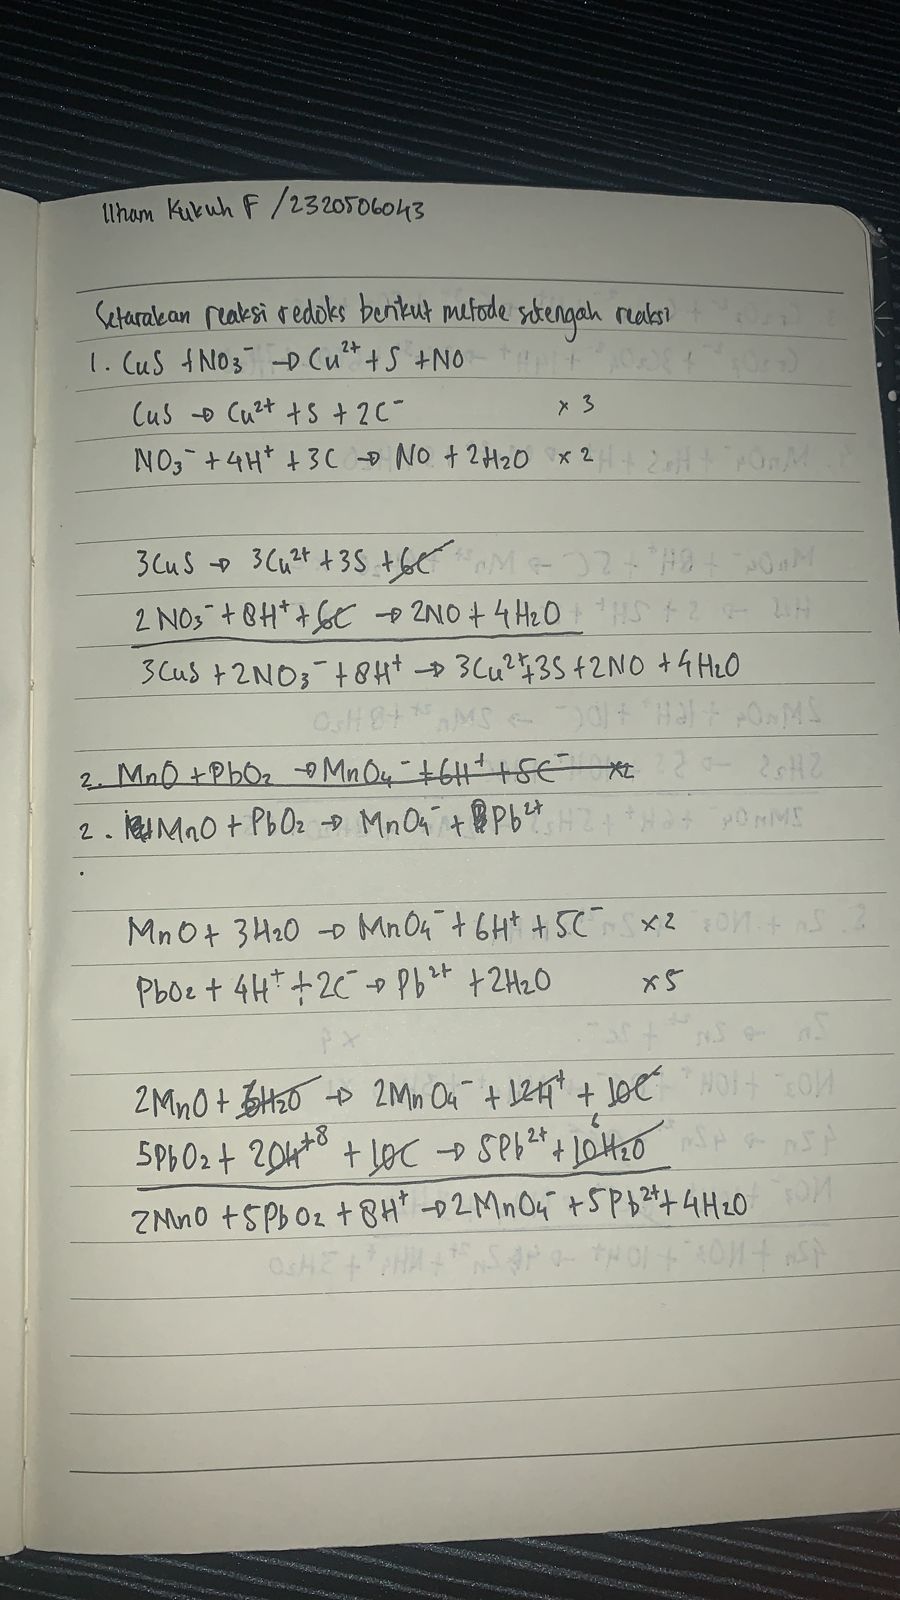 Ilham Kukuh F / 2320506043
Setarakan reaksi redoks berikut metode setengah reaksi
1. CuS + NO₃⁻ → Cu²⁺ + S + NO
CuS → Cu²⁺ + S + 2e⁻ × 3
NO₃⁻ + 4H⁺ + 3e → NO + 2H₂O × 2
3CuS → 3Cu²⁺ + 3S + 6e⁻
2NO₃⁻ + 8H⁺ + 6e → 2NO + 4H₂O
3CuS + 2NO₃⁻ + 8H⁺ → 3Cu²⁺ + 3S + 2NO + 4H₂O
2. MnO + PbO₂ → MnO₄⁻ + 6H⁺ + 5e⁻ ×2
2. MnO + PbO₂ → MnO₄⁻ + Pb²⁺
MnO + 3H₂O → MnO₄⁻ + 6H⁺ + 5e⁻ ×2
PbO₂ + 4H⁺ + 2e⁻ → Pb²⁺ + 2H₂O ×5
2MnO + 6H₂O → 2MnO₄⁻ + 12H⁺ + 10e⁻
5PbO₂ + 20H⁺ 8 + 10e → 5Pb²⁺ + 10H₂O 6
2MnO + 5PbO₂ + 8H⁺ → 2MnO₄⁻ + 5Pb²⁺ + 4H₂O